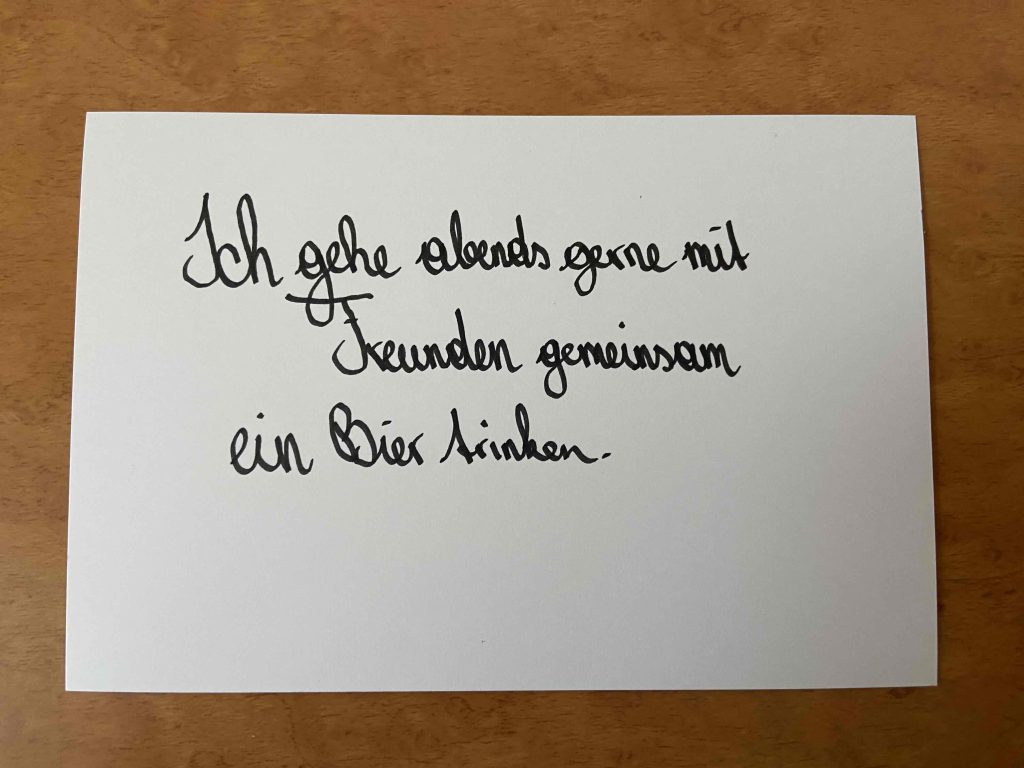 Ich gehe abends gerne mit
Freunden gemeinsam
ein Bier trinken.